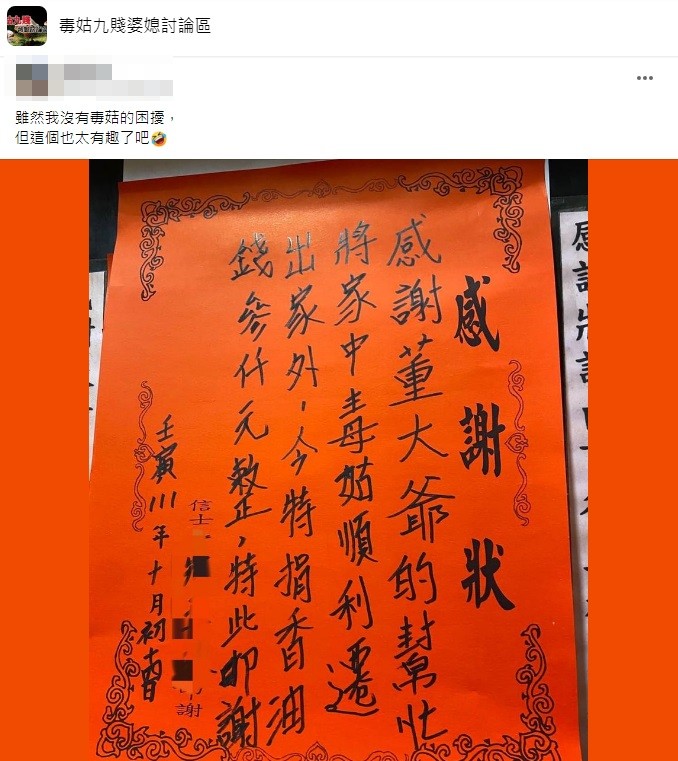 毒姑九賤婆媳討論區
雖然我沒有毒菇的困擾，
但這個也太有趣了吧🤣
感謝狀
感謝董大爺的幫忙
將家中毒姑順利遷
出家外，今特捐香油
錢參仟元整，特此叩謝
信士
謝
壬寅川年十月初